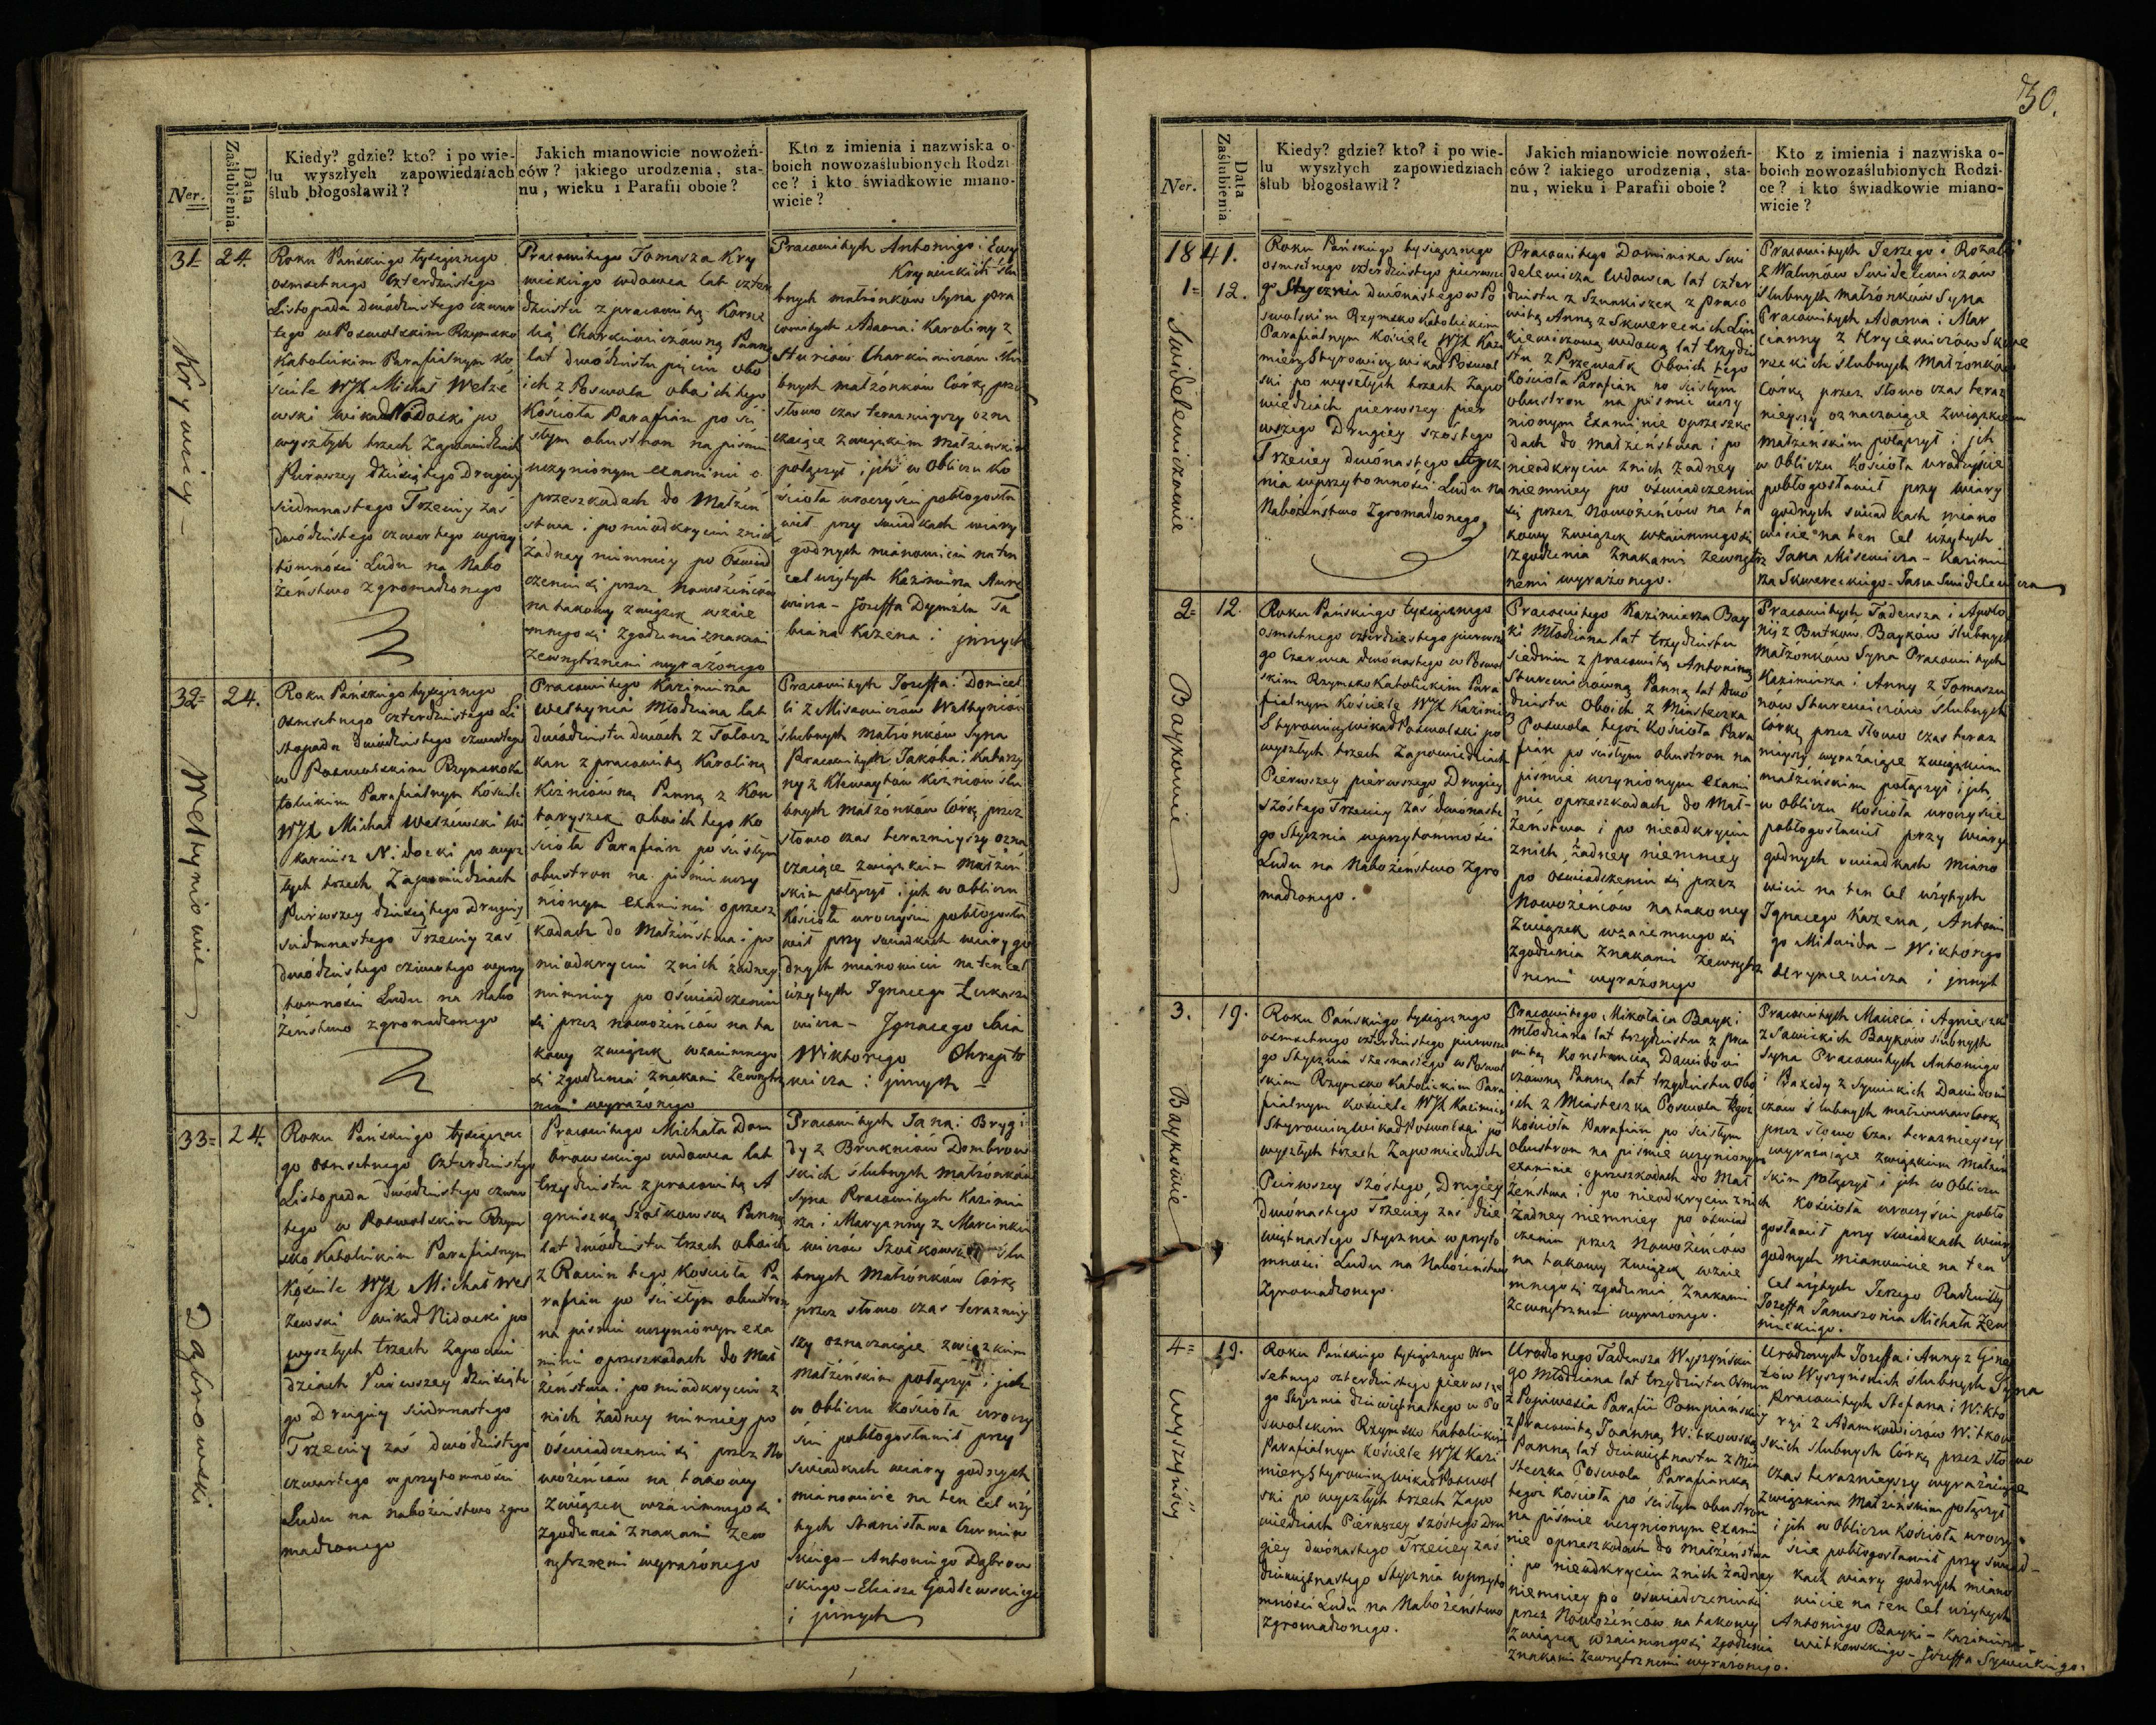 Ner.
Data Zaślubienia.
Kiedy? gdzie? kto? i po wie-
lu wyszłych zapowiedziach
ślub błogosławił?
Jakich mianowicie nowożeń-
ców? jakiego urodzenia, sta-
nu, wieku i Parafii oboie?
Kto z imienia i nazwiska o-
boich nowozaślubionych Rodzi-
ce? i kto świadkowie miano-
wicie?
31
24.
Krywicy
Roku Pańskiego tysiącznego
osmsetnego czterdziestego
Listopada dwódziestego czwar
tego w Poswolskim Rzymsko
Katolickim Parafialnym Ko
ściele WJX Michał
wikar po
wyszłych trzech Zapowiedziach
Pierwszey dziesiątego Drugiey
siedmnastego Trzeciey zaś
dwódziestego czwartego wprzy
tomności Ludu na Nabo
żeństwo zgromadzonego
Pracowitego Tomasza Kry
wickiego wdowca lat czter
dziestu z pracowitą Korne
lią Panną
lat dwódziestu pięciu obo
ich z Poswola oboich tego
Kościoła Parafian po ści
słym obustron na piśmie
uczynionym examinie o
przeszkodach do Małżeń
stwa i po nieodkryciu znich
żadney niemniey po Oświad
czeniu się przez Nowożeńców
na takowy związek wzaie
mnego się zgodzenia znakami
zewnętrznemi wyrażonego
Pracowitych Antoniego i Ewy
Krywickich ślu
bnych małżonków Syna pra
cowitych Adama i Karoliny z
ślu
bnych małżonków Córkę przez
słowo czas teraznieyszy ozna
czaiące związkiem Małżeńskim
połączył i ich w Obliczu Ko
ścioła uroczyście pobłogosła
wił przy świadkach wiary
godnych mianowicie na ten
cel użytych Kazimierza
Jozeffa
Kazena i innych
32
24.
Weltyniowie
Roku Pańskiego tysiącznego
Osmsetnego czterdziestego Li
stopada dwódziestego czwartego
w Poswolskim Rzymskoka
tolickim Parafialnym Kościele
WJX Michał Welżewski Wi
karyusz po wysz
łych trzech Zapowiedziach
Pierwszey dziesiątego Drugiey
siedmnastego Trzeciey zaś
dwódziestego czwartego wprzy
tomności Ludu na Nabo
żeństwo zgromadzonego
Pracowitego Kazimierza
Weltynia Młodziana lat
dwódziestu dwóch z
z pracowitą Karoliną
Panną z Kon
taryszek oboich tego Ko
ścioła Parafian po ścisłym
obustron na piśmie uczy
nionym examinie oprzesz
kodach do Małżeństwa i po
nieodkryciu znich żadney
niemniey po oświadczeniu
się przez nowożeńców na ta
kowy związek wzaiemnego
się zgodzenia znakami Zewnętrz
nemi wyrażonego
Pracowitych Jozeffa i Domicel
li z Misewiczow Weltyniow
ślubnych małżonków Syna
Pracowitych Jakóba i Katarzy
ny z ślu
bnych Małżonków Córkę przez
słowo czas teraznieyszy ozna
czaiące związkiem Małżeń
skim połączył i ich w obliczu
Kościoła uroczyście pobłogosła
wił przy świadkach wiary go
dnych mianowicie na ten cel
użytych Ignacego Łukasze
wicza - Ignacego
Wiktorego
i innych -
33
24.
Dąbrowski
Roku Pańskiego tysiączne
go osmsetnego Czterdziestego
Listopada dwódziestego czwar
tego w Poswolskim Rzym
sko Katolickim Parafialnym
Kościele WJX Michał Wel
żewski wikar po
wyszłych trzech Zapowie
dziach Pierwszey dziesiąte
go Drugiey siedmnastego
Trzeciey zaś dwódziestego
czwartego w przytomności
Ludu na nabożeństwo zgro
madzonego
Pracowitego Michała Dom
browskiego wdowca lat
trzydziestu z pracowitą A
gnieszką Szołkowską Panną
lat dwódziestu trzech oboich
z tego Kościoła Pa
rafian po ścisłym obustron
na piśmie uczynionym exa
minie oprzeszkodach do Mał
żeństwa i po nieodkryciu z
nich żadney niemniey po
Oświadczeniu się przez No
wożeńców na takowy
Związek wzaiemnego się
zgodzenia znakami Zew
nętrznemi wyrażonego
Pracowitych Jana i Brygi
dy z Dombrow
skich ślubnych małżonków
Syna Pracowitych Kazimie
rza i Maryanny z Marcinke
wiczów ślu
bnych Małżonków Córkę
przez słowo czas terazniey
szy oznaczaiące związkiem
Małżeńskim połączył i ich
w Obliczu Kościoła uroczy
ście pobłogosławił przy
świadkach wiary godnych
mianowicie na ten cel uży
tych Stanisława
Antoniego Dąbrow
skiego - Eliasza Godlewskiego
i innych
50.
Ner.
Data Zaślubienia
Kiedy? gdzie? kto? i po wie-
lu wyszłych zapowiedziach
ślub błogosławił?
Jakich mianowicie nowożeń-
ców? iakiego urodzenia, sta-
nu, wieku i Parafii oboie?
Kto z imienia i nazwiska o-
boich nowozaślubionych Rodzi-
ce? i kto świadkowie miano-
wicie?
1841.
1
12.
Swidelewiczowie
Roku Pańskiego tysiącznego
osmsetnego czterdziestego pierwsze
go Stycznia dwónastego w Po
swolskim Rzymsko Katolickim
Parafialnym Kościele WJX Kazi
mierz Styrowicz wikar Poswol
ski po wyszłych trzech Zapo
wiedziach pierwszey pier
wszego Drugiey szóstego
Trzeciey dwónastego Stycz
nia wprzytomności Ludu na
Nabożeństwo Zgromadzonego
Pracowitego Dominika Swi
delewicza Wdowca lat czter
dziestu z Szunkiszek z praco
witą Anną z Skwereckich Lin
kiewiczową wdową lat trzydzie
stu z Przewałk Oboich tego
Kościoła Parafian po ścisłym
obustron na piśmie uczy
nionym Examinie oprzeszko
dach do małżeństwa i po
nieodkryciu znich Żadney
niemniey po oświadczeniu
się przez Nowożeńców na ta
kowy związek wzaiemnego się
zgodzenia Znakami zewnętrz
nemi wyrażonego.
Pracowitych Jerzego i Rozalii
z Walunów Swidelewiczow
Slubnych Małżonków Syna
Pracowitych Adama i Mar
cianny z Hrycewiczów Skwe
reckich Slubnych Małżonków
Córkę przez słowo czas teraz
nieyszy oznaczaiące związkiem
małżeńskim połączył i ich
w Obliczu Kościoła uroczyście
pobłogosławił przy wiary
godnych świadkach miano
wicie na ten Cel użytych
Jana Misewicza - Kazimie
rza Skwereckiego - Jana Swidelewicza
2
12.
Baykowie
Roku Pańskiego tysiącznego
osmsetnego czterdziestego pierwsze
go Czerwca dwónastego w Poswol
skim Rzymsko Katolickim Para
fialnym Kościele WJX Kazimierz
Styrowicz wikar Poswolski po
wyszłych trzech Zapowiedziach
Pierwszey pierwszego Drugiey
szóstego Trzeciey zaś dwónaste
go Stycznia wprzytomności
Ludu na Nabożeństwo Zgro
madzonego.
Pracowitego Kazimierza Bay
ki Młodziana lat trzydziestu
siedmiu z pracowitą Antoniną
Sturewiczówną Panną lat dwó
dziestu Oboich z Miasteczka
Poswola tegoż Kościoła Para
fian po ścisłym obustron na
piśmie uczynionym exami
nie oprzeszkodach do Mał-
żeństwa i po nieodkryciu
znich żadney niemniey
po oświadczeniu się przez
Nowożeńców na takowy
Związek wzaiemnego się
zgodzenia znakami zewnętrz
nemi wyrażonego
Pracowitych Tadeusza i Apolo
nij z Butkow Baykow Slubnych
Małżonków Syna Pracowitych
Kazimierza i Anny z Tomaszu
nów Sturewiczów Slubnych
Córkę przez słowo czas teraz
nieyszy wyrażaiące związkiem
małżeńskim połączył i ich
w obliczu Kościoła uroczyście
pobłogosławił przy wiary
godnych świadkach miano
wicie na ten Cel użytych
Ignacego Kazena, Antoni
go - Wiktorego
i innych
3.
19.
Baykowie
Roku Pańskiego tysiącznego
osmsetnego czterdziestego pierwsze
go Stycznia szesnastego w Poswol
skim Rzymsko Katolickim Para
fialnym Kościele WJX Kazimierz
Styrowicz Wikar Poswolski po
wyszłych trzech Zapowiedziach
Pierwszey szóstego, Drugiey
dwónastego Trzeciey zaś dzie
więtnastego Stycznia wprzyto
mności Ludu na Nabożeństwo
Zgromadzonego.
Pracowitego Mikołaia Bayki
Młodziana lat trzydziestu z pra
cowitą Konstancią Dawidowi
czówną Panną lat trzydziestu Obo
ich z Miasteczka Poswola tegoż
Kościoła Parafian po ścisłym
obustron na piśmie uczynionym
examinie oprzeszkodach do Mał
żeństwa i po nieodkryciu znich
żadney niemniey po oświad
czeniu przez Nowożeńców
na takowy związek wzaie
mnego się zgodzenia Znakami
Zewnętrznemi wyrażonego.
Pracowitych Macieia i Agnieszki
z Sawickich Baykow Slubnych
Syna Pracowitych Antoniego
i z Dawidowi
czow Slubnych małżonkow Corkę
przez słowo Czas teraznieyszy
wyrażaiące związkiem Małżeń
skim połączył i ich w Obliczu
Kościoła uroczyście pobło
gosławił przy świadkach wiary
godnych mianowicie na ten
Cel użytych Jerzego
Jozeffa Januszonia Michała
4
19.
Wyszyńscy
Roku Pańskiego tysiącznego Osm
setnego czterdziestego pierwsze
go Stycznia dziewiętnastego w Po
swolskim Rzymsko Katolickim
Parafialnym Kościele WJX Kazi
mierz Styrowicz wikar Poswol
ski po wyszłych trzech Zapo
wiedziach Pierwszey szóstego Dru
giey dwónastego Trzeciey zaś
dziewiętnastego Stycznia wprzyto
mności Ludu na Nabożeństwo
Zgromadzonego.
Urodzonego Tadeusza Wyszyńskie
go Młodziana lat trzydziestu Osmiu
z Parafii Pompianskiey
z pracowitą Joanną Witkowską
Panną lat dziewiętnastu z Mia
steczka Poswola Parafianką
tegoż Kościoła po ścisłym obustron
na piśmie uczynionym exami
nie oprzeszkodach do małżeństwa
i po nieodkryciu znich żadney
niemniey po oświadczeniu się
przez Nowożeńców na takowy
Związek wzaiemnego się Zgodzenia
Znakami Zewnętrznemi wyrażonego.
Urodzonych Jozeffa i Anny z
Wyszyńskich slubnych Syna
Pracowitych Stefana i Wikto
ryi z Adamkowiczów Witkow
skich Slubnych Córkę przez słowo
czas teraznieyszy wyrażaiące
Związkiem Małżeńskim połączył
i ich w Obliczu Kościoła uroczy
ście pobłogosławił przy świad-
kach wiary godnych miano
wicie na ten Cel użytych
Antoniego Bayki - Kazimierza
Witkowskiego - Jozeffa